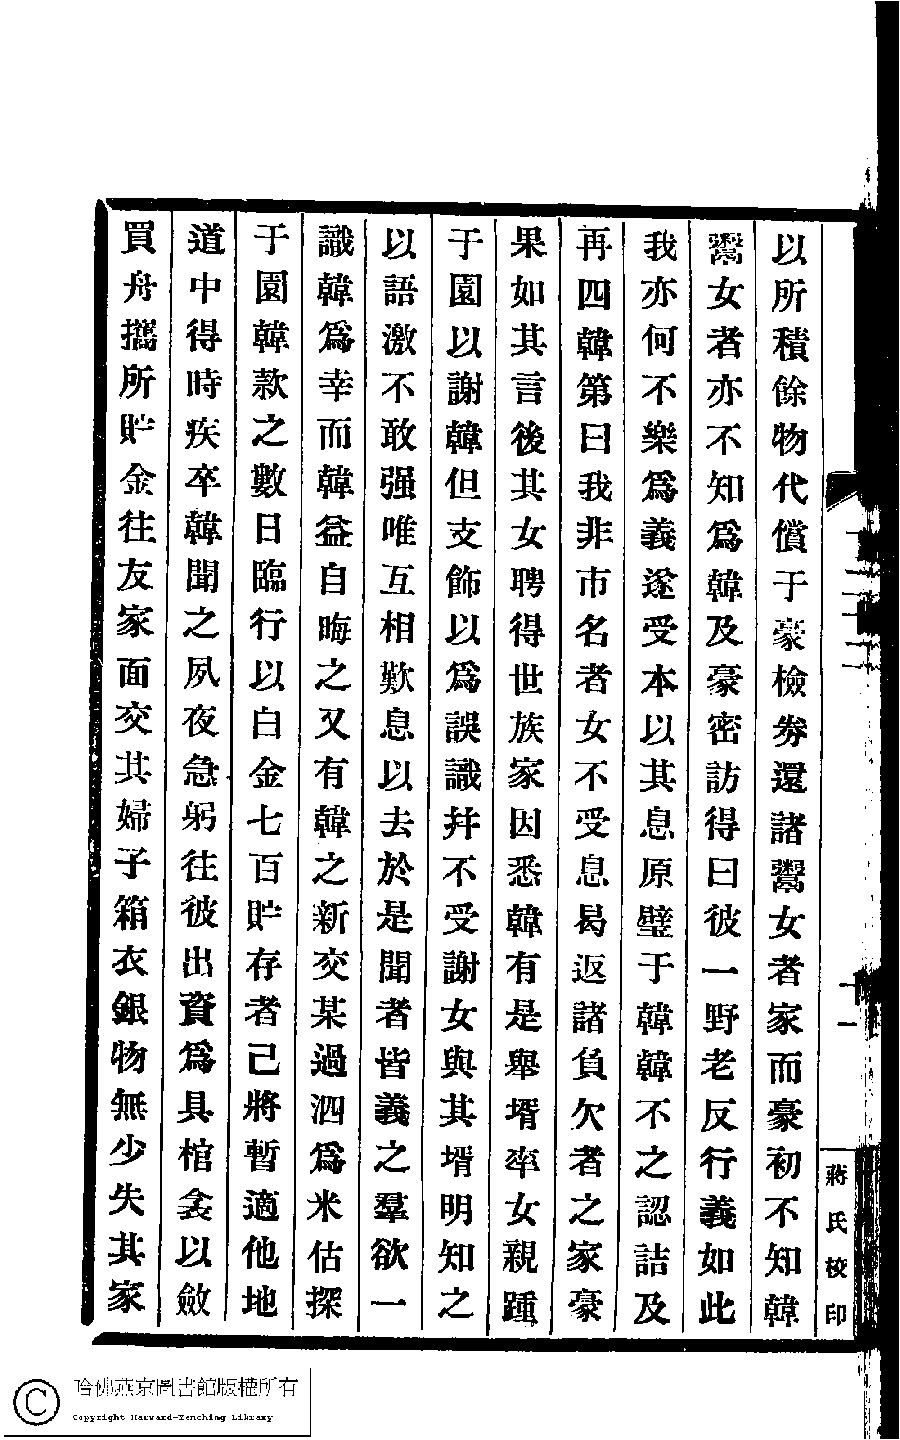 以所積餘物代償于豪檢券還諸鬻女者家而豪初不知韓
鬻女者亦不知爲韓及豪密訪得曰彼一野老反行義如此
我亦何不樂爲義遂受本以其息原璧于韓韓不之認詰及
再四韓第曰我非市名者女不受息曷返諸負欠者之家豪
果如其言後其女聘得世族家因悉韓有是舉壻率女親踵
于園以謝韓但支飾以爲誤識幷不受謝女與其壻明知之
以語激不敢强唯互相歎息以去於是聞者皆義之羣欲一
識韓爲幸而韓益自晦之又有韓之新交某過泗爲米估探
于園韓款之數日臨行以白金七百貯存者己將暫適他地
道中得時疾卒韓聞之夙夜急躬往彼出資爲具棺衾以斂
買舟攜所貯金往友家面交其婦子箱衣銀物無少失其家
十一
蔣氏校印
哈佛燕京圖書館版權所有
Copyright Harvard-Yenching Library